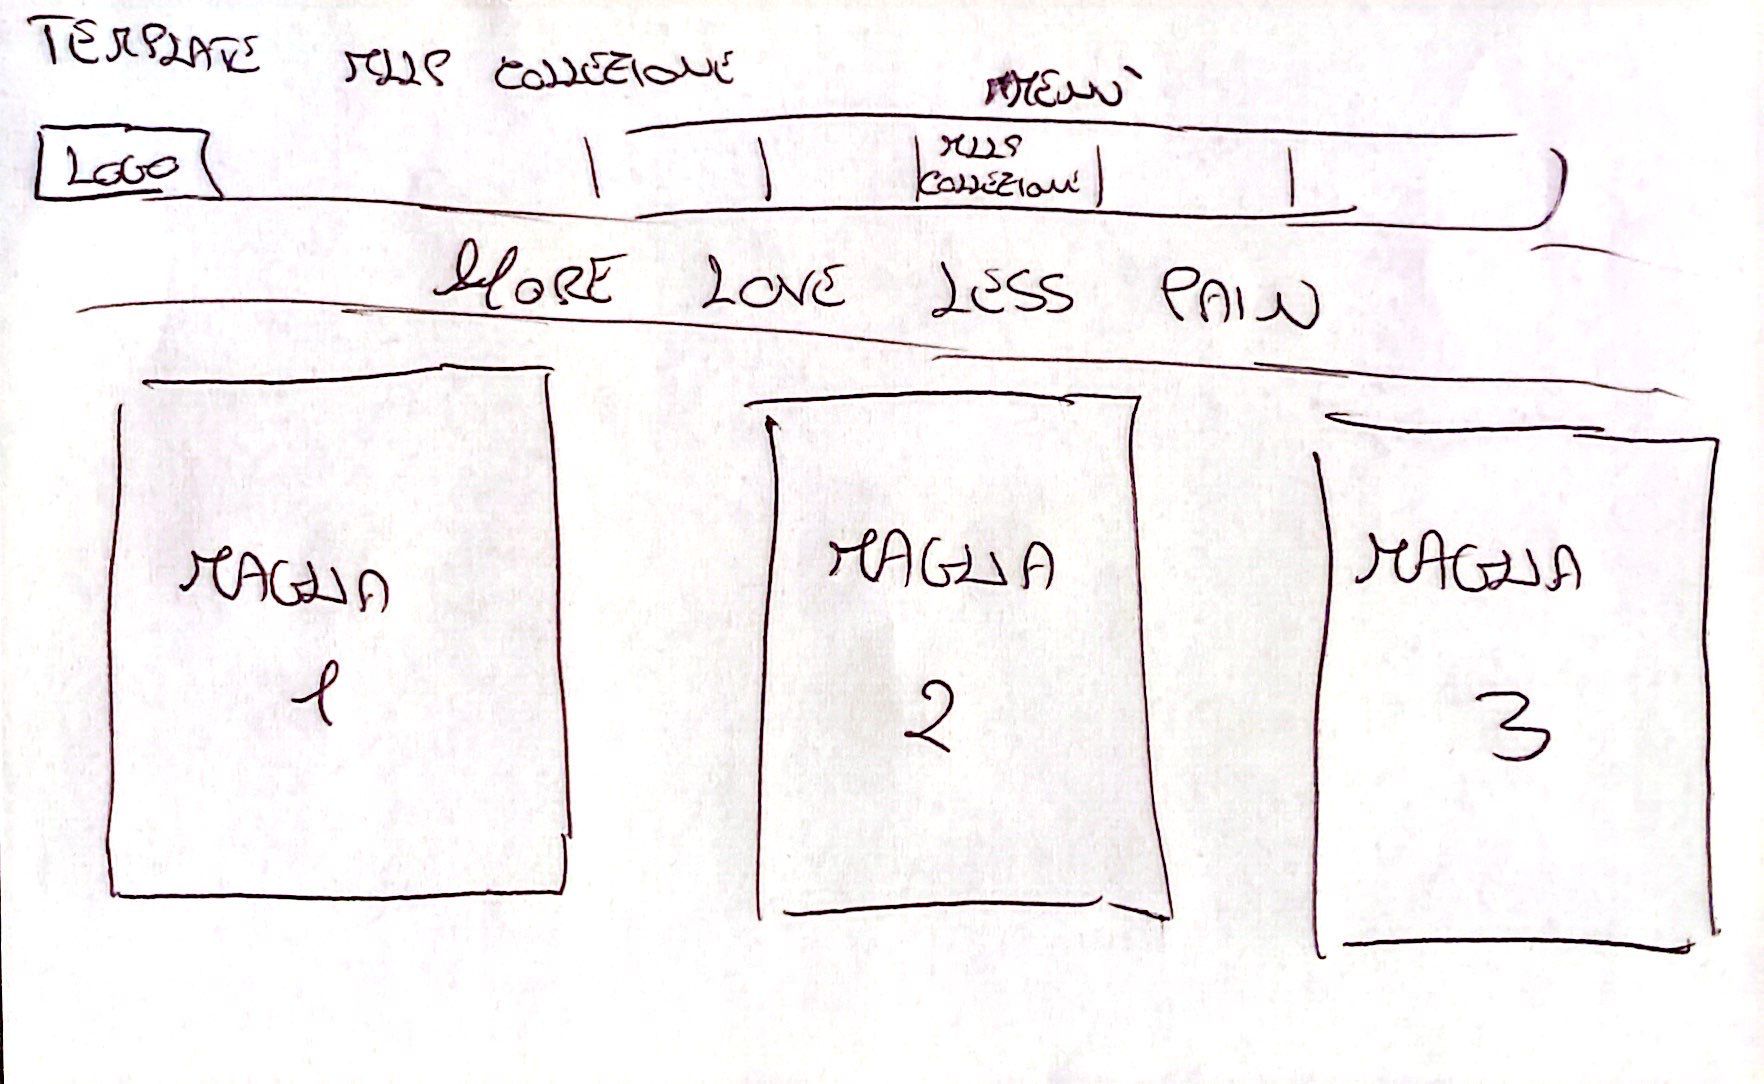 TEMPLATE MLLP COLLEZIONE
MENÙ
LOGO
MLLP
COLLEZIONE
MORE LOVE LESS PAIN
MAGLIA
1
MAGLIA
2
MAGLIA
3